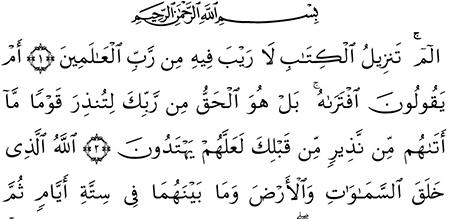 بِسْمِ اللَّهِ الرَّحْمَٰنِ الرَّحِيمِ
الٓمٓ ۚ تَنزِيلُ الْكِتَٰبِ لَا رَيْبَ فِيهِ مِن رَّبِّ الْعَٰلَمِينَ ﴿١﴾ أَمْ
يَقُولُونَ افْتَرَىٰهُ ۚ بَلْ هُوَ الْحَقُّ مِن رَّبِّكَ لِتُنذِرَ قَوْمًا مَّآ
أَتَىٰهُم مِّن نَّذِيرٍ مِّن قَبْلِكَ لَعَلَّهُمْ يَهْتَدُونَ ﴿٢﴾ اللَّهُ الَّذِى
خَلَقَ السَّمَٰوَٰتِ وَالْأَرْضَ وَمَا بَيْنَهُمَا فِى سِتَّةِ أَيَّامٍ ثُمَّ